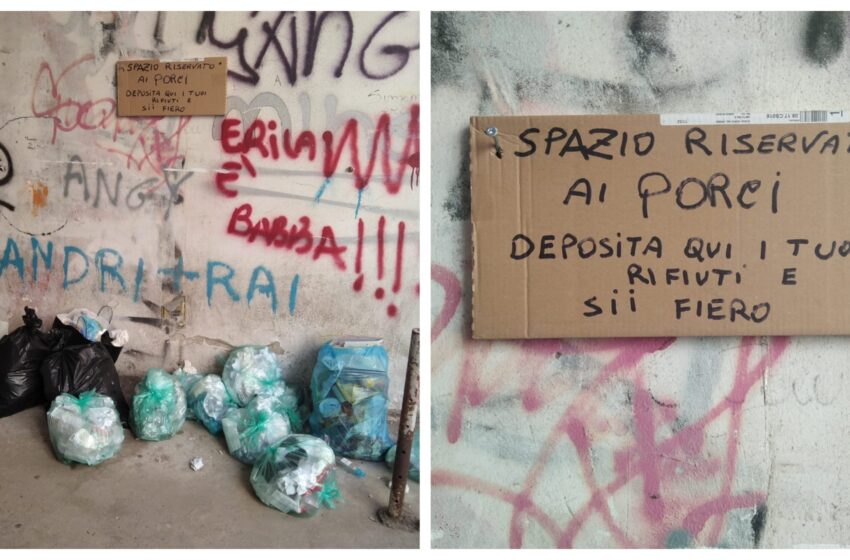 "SPAZIO RISERVATO"
AI PORCI
DEPOSITA QUI I TUOI
RIFIUTI E
SII FIERO
ERILA
È
BABBA!!!
ANGY
ANDRI+RAI
SPAZIO RISERVAT
AI PORCI
DEPOSITA QUI I TUO
RIFIUTI E
SII FIERO